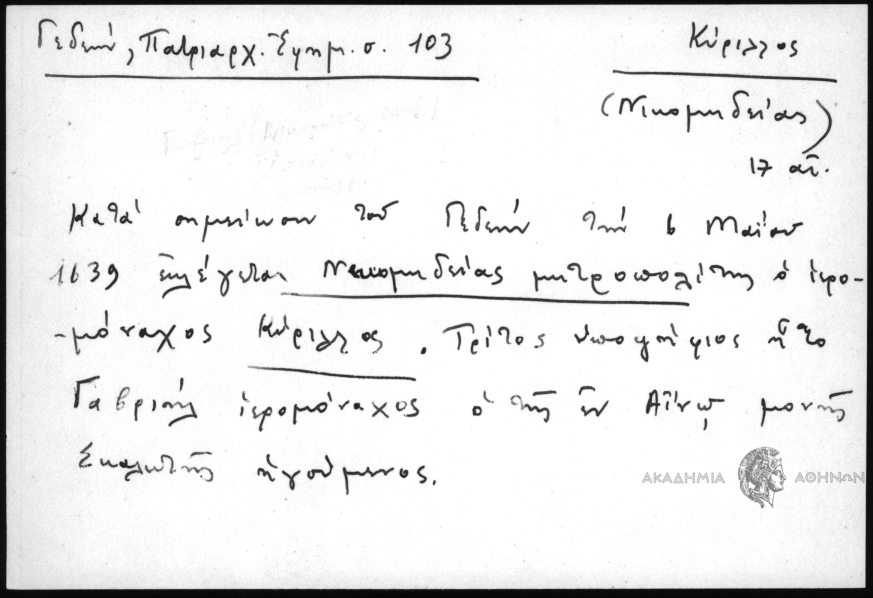 Γεδεών, Πατριαρχ. Ἐφημ. σ. 103
Κύριλλος
(Νικομηδείας)
17 αἰ.
Κατά σημείωσιν τοῦ Γεδεών τήν 6 Μαΐου
1639 ἐκλέγεται Νικομηδείας μητροπολίτης ὁ ἱερο-
-μόναχος Κύριλλος. Τρίτος ὑποψήφιος ἦτο
Γαβριήλ ἱερομόναχος ὁ τῆς ἐν Αἴνῳ μονῆς
Σκαλωτῆς ἡγούμενος.
ΑΚΑΔΗΜΙΑ ΑΘΗΝΩΝ